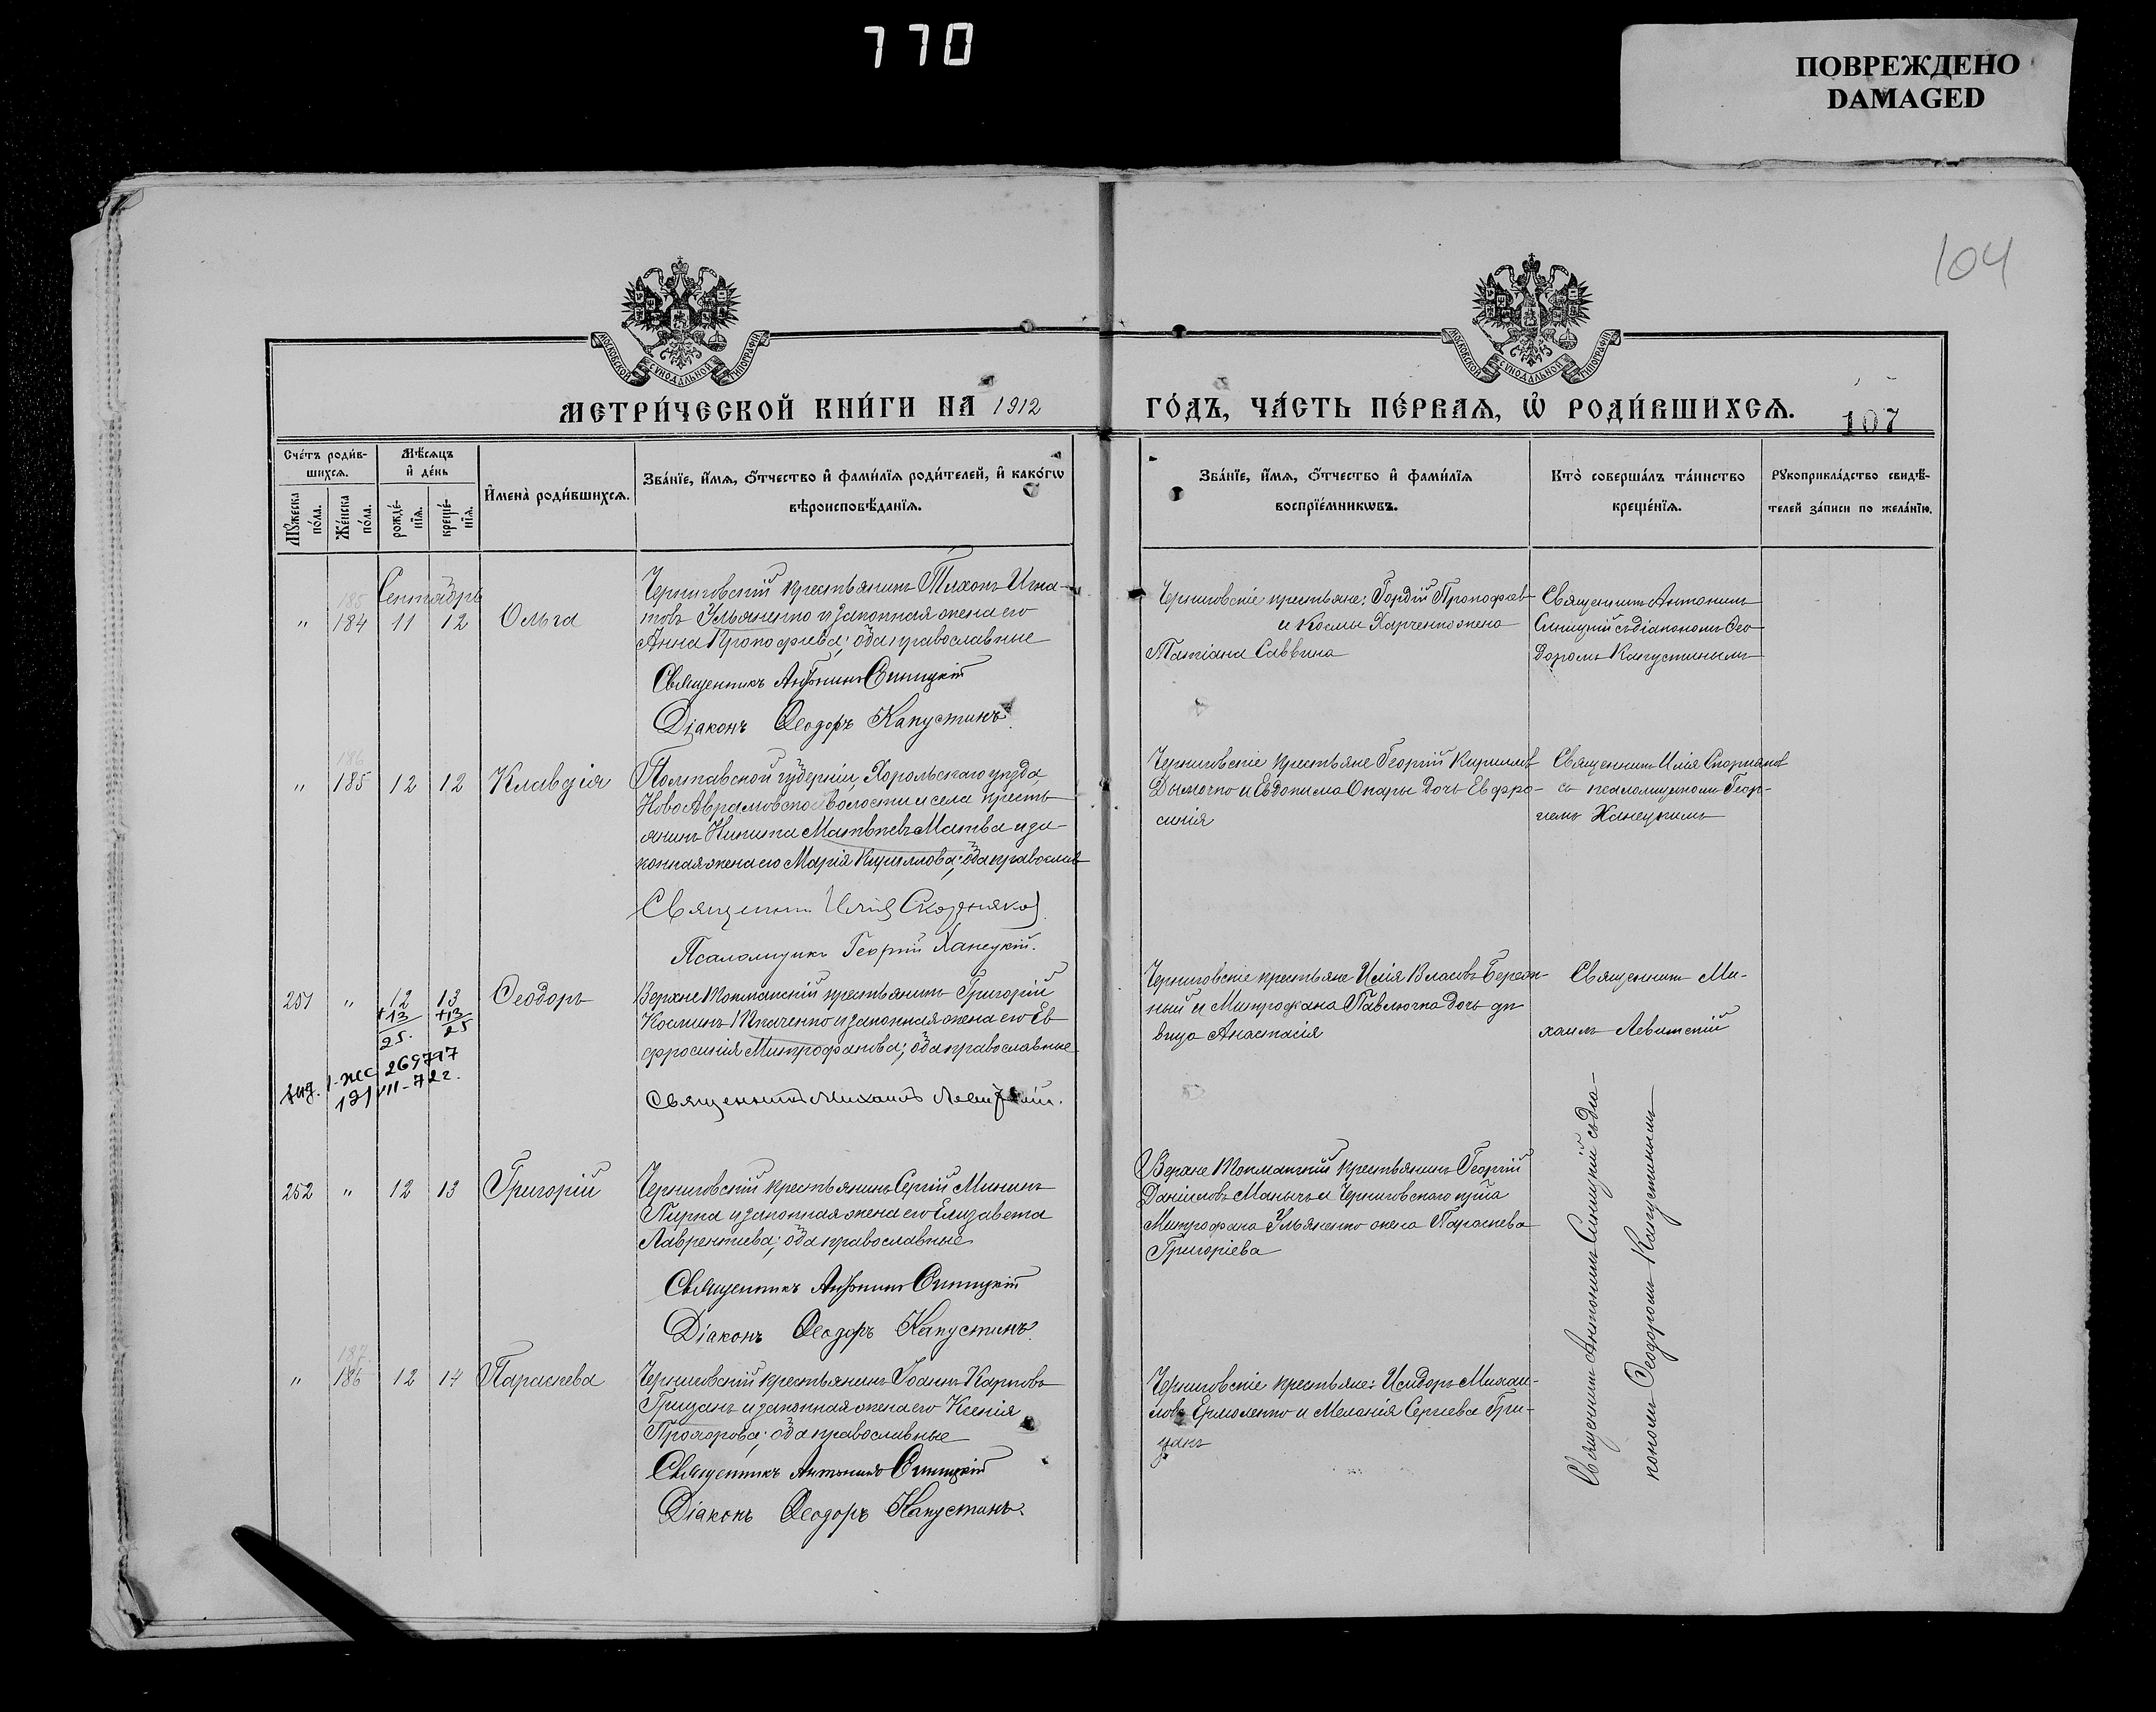 770
ПОВРЕЖДЕНО
DAMAGED
104
МОСКОВСКОЙ СУНОДАЛЬНОЙ ТИПОГРАФІИ
МОСКОВСКОЙ СУНОДАЛЬНОЙ ТИПОГРАФІИ
МЕТРИ́ЧЕСКОЙ КНИ́ГИ НА 1912
ГО́ДЪ, ЧА́СТЬ ПЕ́РВАѦ, Ѡ҆ РОДИ́ВШИХСѦ.
107
Сче́тъ роди́в-
шихсѧ.
Мѣ́сѧцъ
и҆ де́нь
Мꙋ́жеска
по́ла.
Же́нска
по́ла.
рожде́-
нїѧ.
креще́-
нїѧ.
И҆мена̀ роди́вшихсѧ.
Зва́нїе, и҆́мѧ, ѻ҆́тчество и҆ фами́лїѧ роди́телей, и҆ како́гѡ
вѣроисповѣ́данїѧ.
Зва́нїе, и҆́мѧ, ѻ҆́тчество и҆ фами́лїѧ
воспрїе́мникѡвъ.
Кто̀ соверша́лъ та́инство
креще́нїѧ.
Рꙋкоприкла́дство свидѣ́-
телей за́писи по жела́нїю.
Сентябрь
185
" 184 11 12 Ольга
Черниговскій крестьянинъ Тихонъ Игна-
товъ Ульяненко и законная жена его
Анна Прокофіева; оба православные
Священникъ Антонинъ Синицкій
Діаконъ Ѳеодоръ Капустинъ
Черниговскіе крестьяне: Гордій Прокофьев
и Космы Харченко жена
Татіана Саввина
Священникъ Антонинъ
Синицкій съ діакономъ Ѳео-
доромъ Капустинымъ
186
" 185 12 12 Клавдія
Полтавской губерніи, Хорольскаго уѣзда,
Ново Аврамовской волости и села кресть-
янинъ Никита Матвѣевъ Матва и за-
конная жена его Марія Кириллова; оба православн
Священникъ Илія Скорняков
Псаломщикъ Георгій Ханецкій.
Черниговскіе крестьяне Георгій Кириллов
Дымочко и Евдокима Опары дочь Евфро-
синія
Священникъ Илія Скорняков
съ псаломщикомъ Геор-
гіемъ Ханецкимъ
251 " 12 13 Ѳеодоръ
+13 +13
25. 25
1-ЖС 269797
19/VII-72г.
Верхне Токмакскій крестьянинъ Григорій
Косминъ Ткаченко и законная жена его Ев
фросинія Митрофанова; оба православные
Священникъ Михаилъ Левитскій.
Черниговскіе крестьяне Илія Власовъ Береж-
ный и Митрофана Павлючка дочь дѣ
вица Анастасія
Священникъ Ми-
хаилъ Левитскій
252 " 12 13 Григорій
Черниговскій крестьянинъ Сергій Мининъ
Кирпа и законная жена его Елизавета
Лаврентіева; оба православные
Священникъ Антонинъ Синицкій
Діаконъ Ѳеодоръ Капустинъ
Верхне Токмакскій крестьянинъ Георгій
Даніиловъ Манычъ и Черниговскаго
Митрофана Ульяненко жена Параскева
Григоріева
Священникъ Антонинъ Синицкій съ діа-
кономъ Ѳеодоромъ Капустинымъ
187
" 186 12 14 Параскева
Черниговскій крестьянинъ Іоаннъ Карповъ
Грицанъ и законная жена его Ксенія
Прохорова; оба православные
Священникъ Антонинъ Синицкій
Діаконъ Ѳеодоръ Капустинъ
Черниговскіе крестьяне: Исидоръ Михаи-
ловъ Ермоленко и Меланія Сергіева Гри-
цанъ